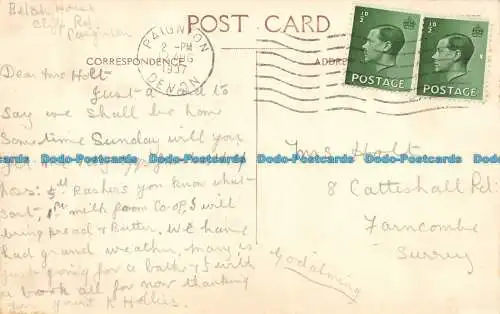 Beach House
Cliff Rd
Paignton
POST CARD
CORRESPONDENCE
ADDRESS
PAIGNTON
2 - PM
1937
DEVON
½D
POSTAGE
½D
POSTAGE
Dear Mrs Holt
Just a card to
say we shall be home
sometime Sunday will you
get
has: 5d Rashers you know what
sort, 1 Pt milk from Co-op, I will
bring bread & Butter. We have
had grand weather, Mary is
just going for a bathe & I will
a book all for now thanking
yours K Hollis
Mrs Holt
8 Catteshall Rd:
Farncombe
Surrey
Godalming
Dodo-Postcards Dodo-Postcards Dodo-Postcards Dodo-Postcards